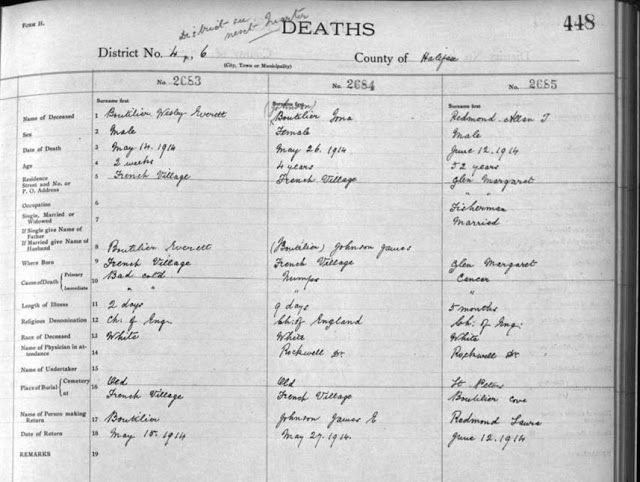 FORM H.
District see
next Quarter
DEATHS
448
District No. 4, 6
County of Halifax
(City, Town or Municipality)
No. 2683 No. 2684 No. 2685
Surname first Surname first Surname first
Name of Deceased 1 Boutilier Wesley Everett Boutilier Iona Redmond Allan J
Sex 2 Male Female Male
Date of Death 3 May 14. 1914 May 26. 1914 June 12. 1914
Age 4 2 weeks 4 years 52 years
Residence
Street and No. or
P. O. Address
5 French Village French Village Glen Margaret
" "
Occupation 6 Fisherman
Single, Married or
Widowed
7 Married
If Single give Name of
Father
If Married give Name of
Husband
8 Boutilier Everett (Boutilier) Johnson James
Where Born 9 French Village French Village Glen Margaret
Cause of Death Primary
Immediate
10 Bad cold Mumps Cancer
" " " "
Length of Illness 11 2 days 9 days 5 months
Religious Denomination 12 Ch. of Eng. Ch. of England Ch. of Eng.
Race of Deceased 13 White White White
Name of Physician in at-
tendance
14 Rockwell Dr Rockwell Dr
Name of Undertaker 15
Place of Burial Cemetery
at
16 Old Old St Peters
French Village French Village Boutilier Cove
Name of Person making
Return
17 Boutilier Johnson James E Redmond Laura
Date of Return 18 May 15. 1914 May 27. 1914. June 12. 1914
REMARKS 19